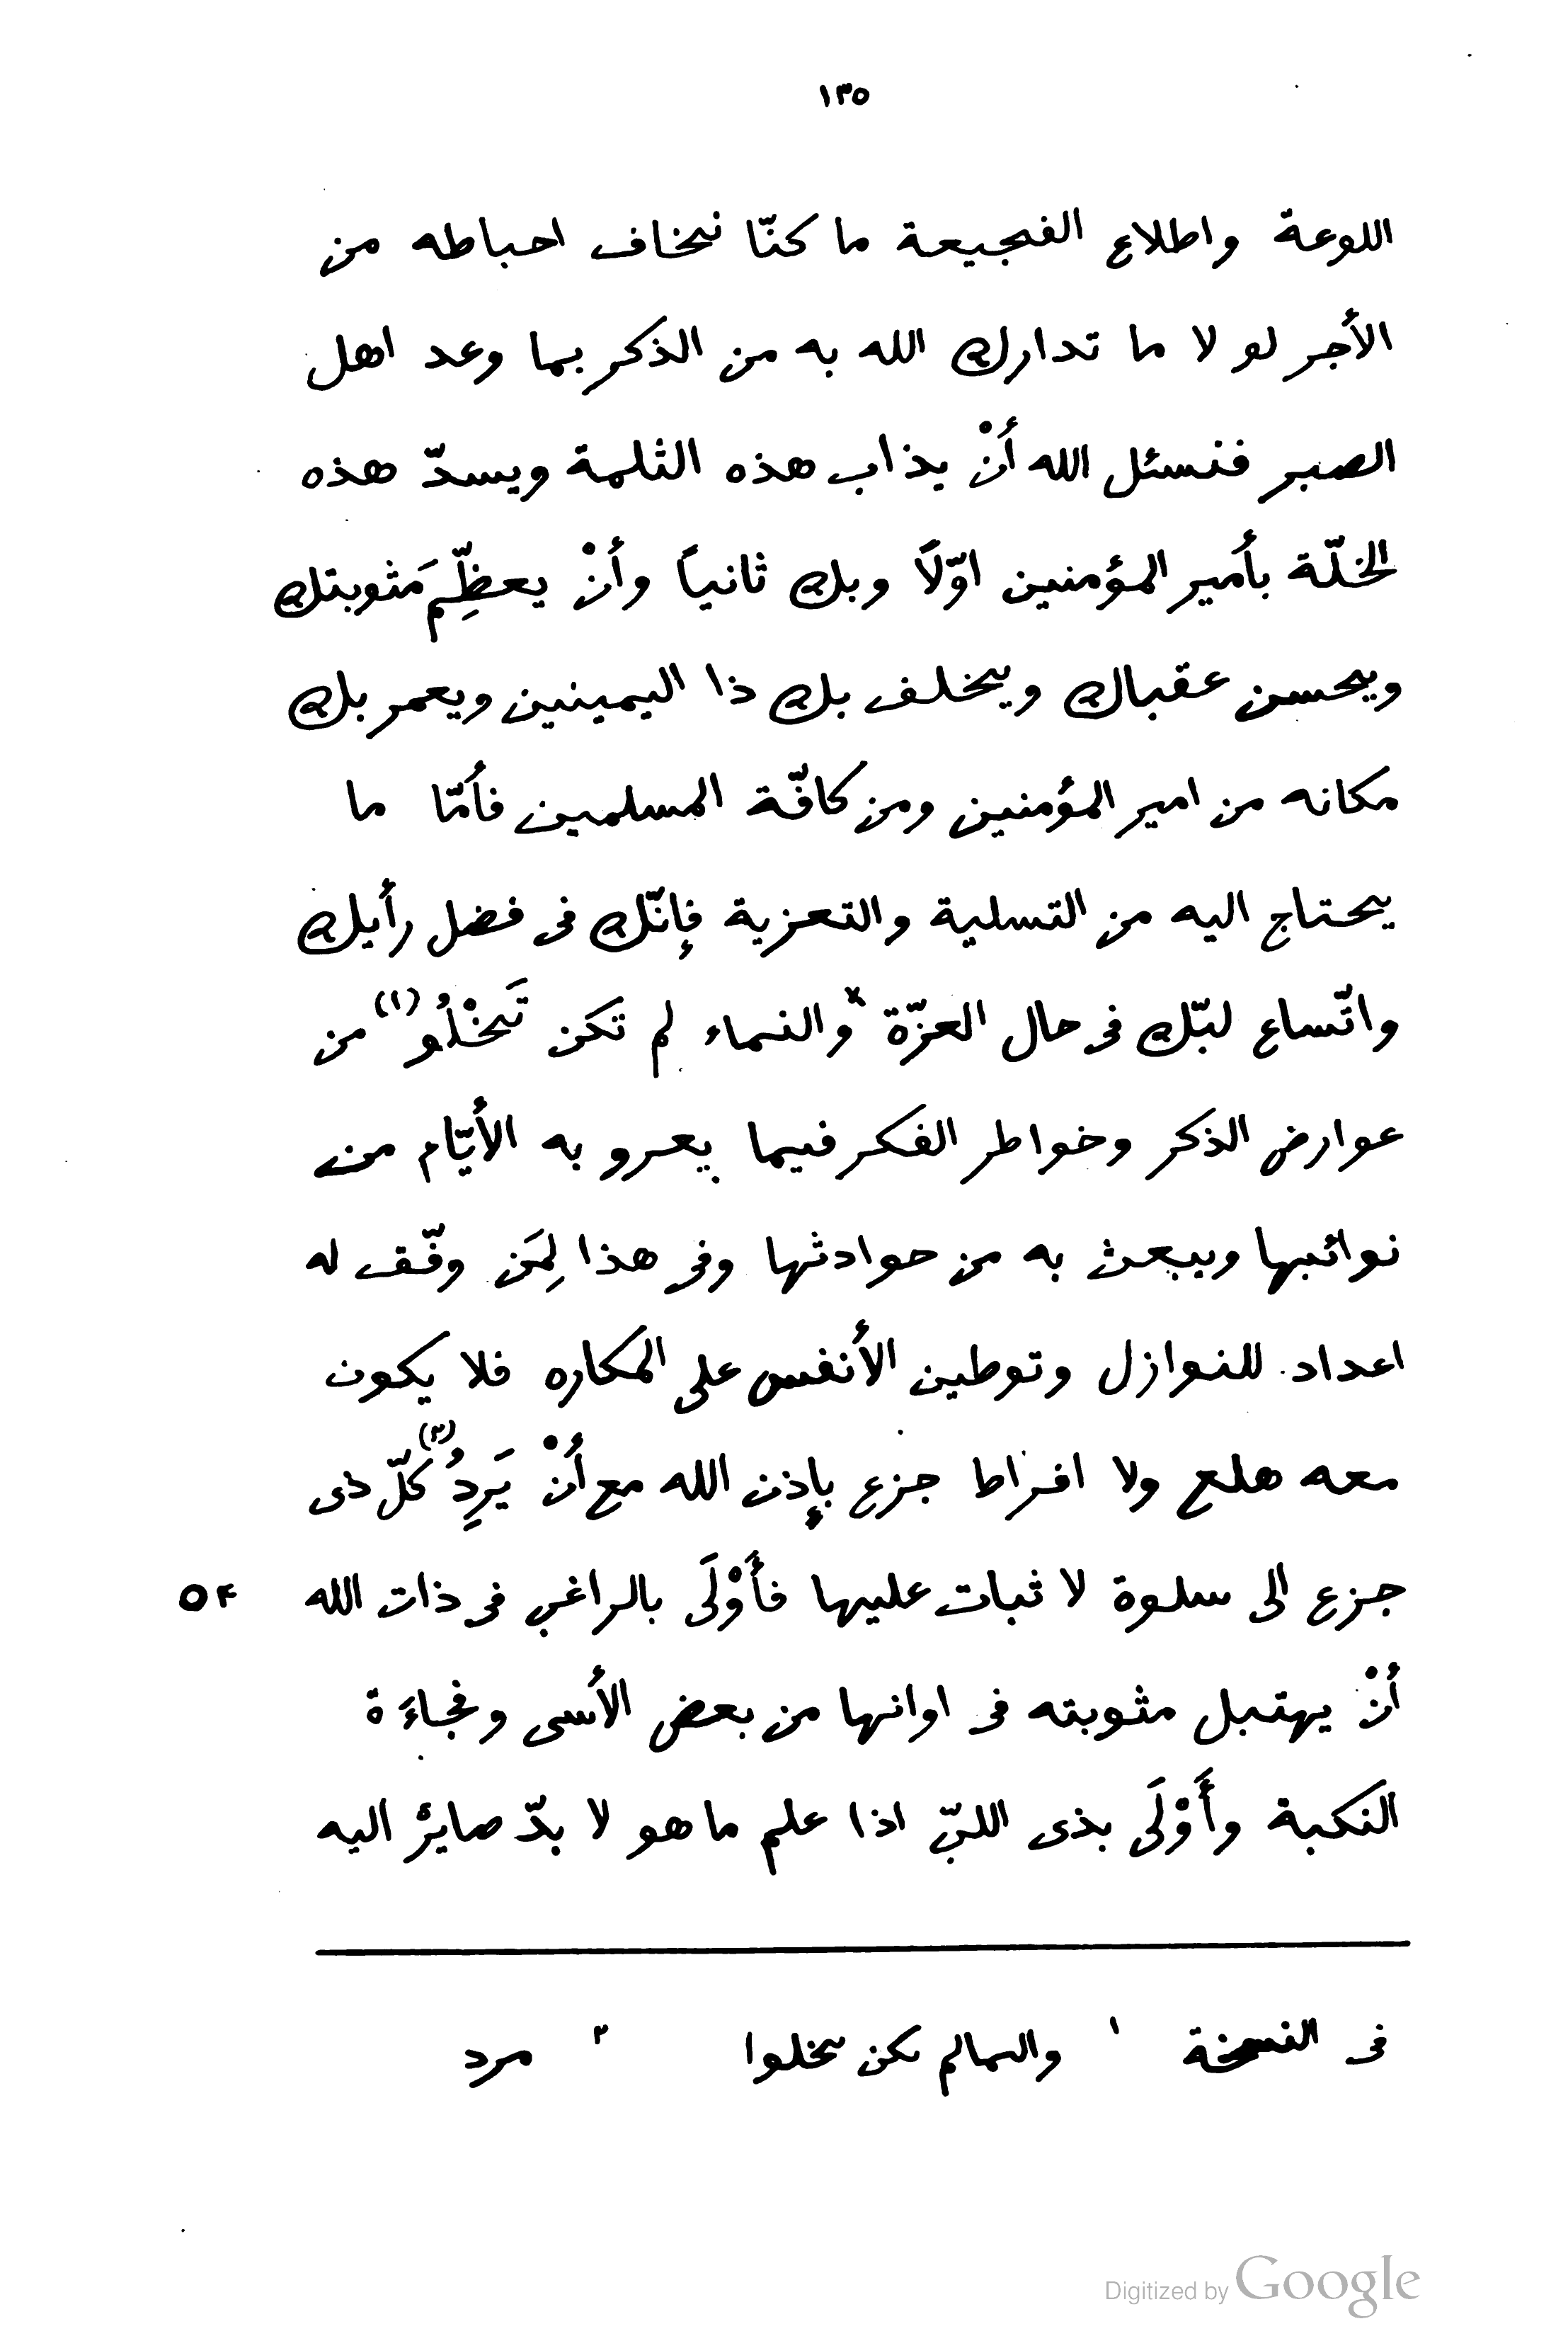 ١٣٥
اللوعة واطلاع الفجيعة ما كنّا نخاف احباطه من
الأجر لو لا ما تدارك الله به من الذكر بما وعد اهل
الصبر فنسئل الله أنْ يذاب هذه الثلمة ويسدّ هذه
الخلّة بأمير المؤمنين اوّلاً وبك ثانياً وأنْ يعظِّم مَثوبتك
ويحسن عقباك ويخلف بك ذا اليمينين ويعمر بك
مكانه من امير المؤمنين ومن كافّة المسلمين فأمّا ما
يحتاج اليه من التسلية والتعزية فإنّك فى فضل رأيك
واتّساع لبّك فى حال العزّة * والنماء لم تكن تَخْلُو (١) من
عوارض الذكر وخواطر الفكر فيما يعرو به الأيّام من
نوائبها ويبعث به من حوادثها وفى هذا لِمَن وفّق له
اعداد للنوازل وتوطين الأنفس على المكاره فلا يكون
معه هلع ولا افراط جزع بإذن الله مع أنْ يَرِدُ (٢) كلّ ذى
جزع الى سلوة لا ثبات عليها فأَوْلَى بالراغب فى ذات الله ٥٤
أنْ يهتبل مثوبته فى اوانها من بعض الأسى وفجاءَة
النكبة وأَوْلَى بذى اللبّ اذا علم ما هو لا بدّ صايرْ اليه
فى النسخة ١ والىمالم ىكن ىخلوا ٢ مرد
Digitized by Google